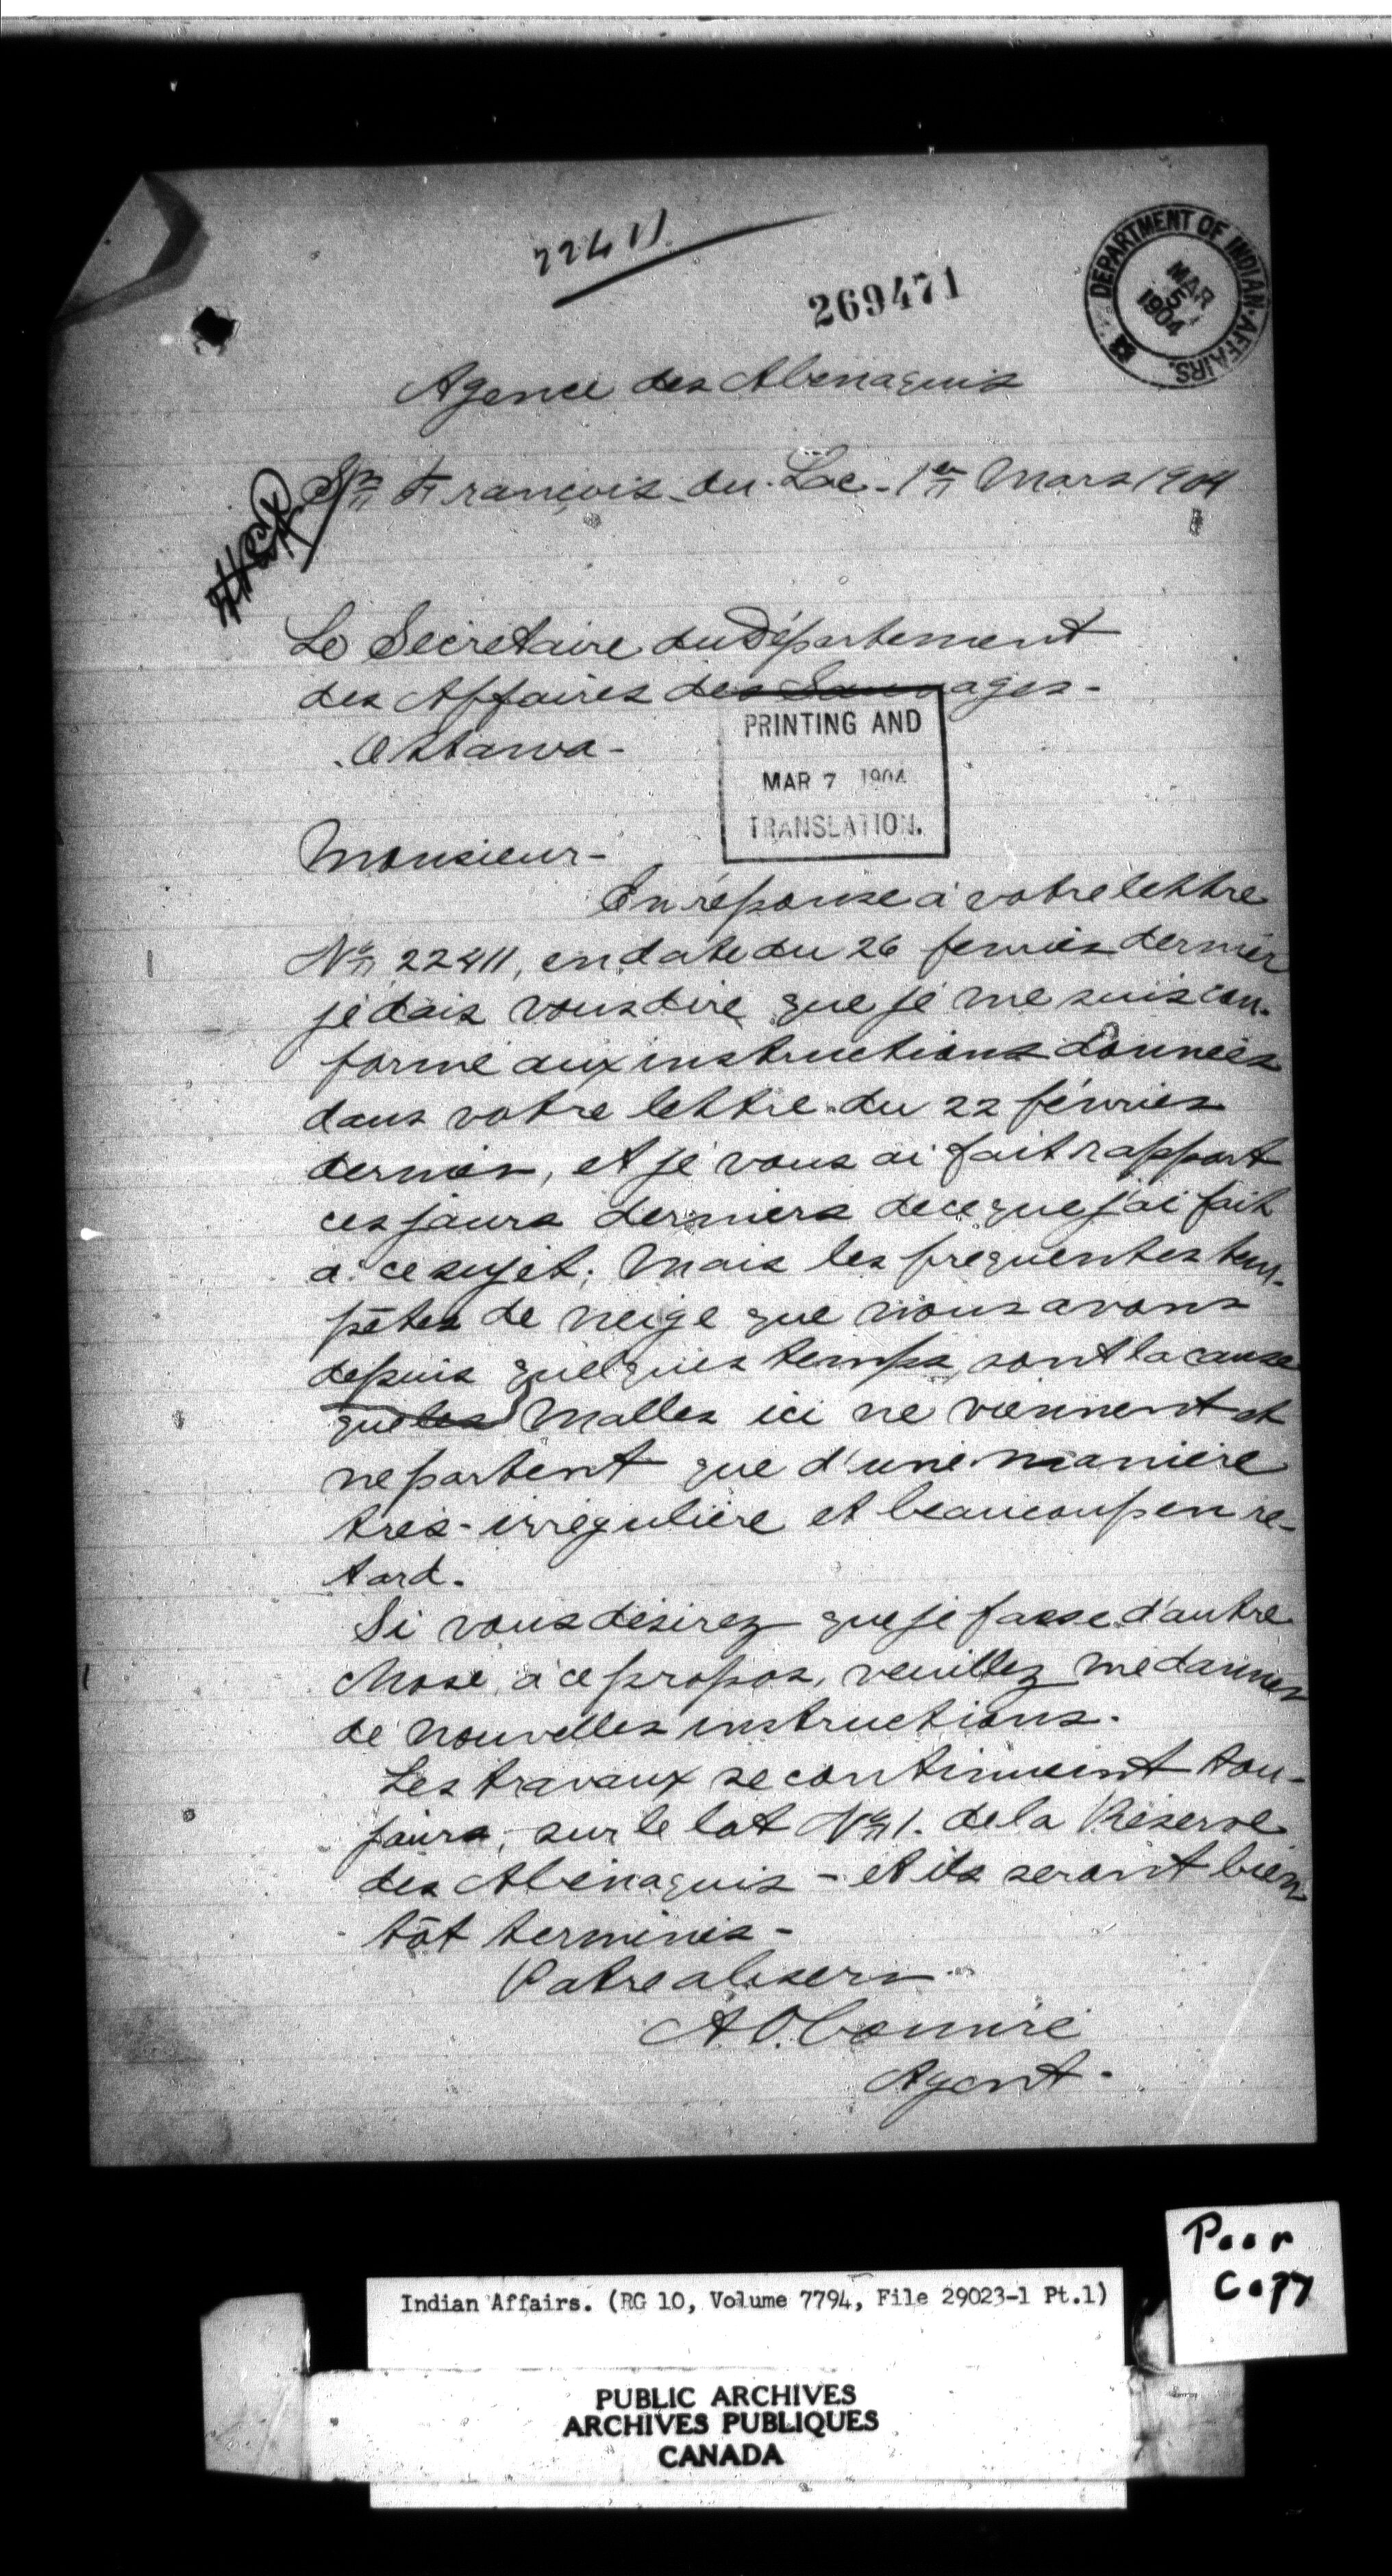 22411
269471
DEPARTMENT OF INDIAN AFFAIRS.
MAR
5
1904
Agence des Abénaquis
St François-du-Lac-1er Mars 1904
Le Secrétaire du Département
des Affaires des Sauvages-
Ottawa-
PRINTING AND
MAR 7 1904
TRANSLATION.
Monsieur-
En réponse à votre lettre
No 22411, en date du 26 fevrier dernier
je dois vous dire que je me suis con-
formé aux instructions données
dans votre lettre du 22 février
dernier, et je vous ai fait rapport
ces jours derniers de ce que j'ai fait
à ce sujet; Mais les frequentes tem-
pêtes de neige que nous avons
depuis quelques temps, sont la cause
que les Malles ici ne viennent et
ne partent que d'une manière
très-irrégulière et beaucoup en re-
tard.
Si vous désirez que je fasse d'autre
chose, à ce propos, veuillez me donner
de nouvelles instructions.
Les travaux se continuent tou-
jours, sur le lot No 1. de la Réserve
des Abénaquis - et ils seront bien
tôt terminés-
Votre obt serv
A O. Comiré
Agent-
Poor
Copy
Indian Affairs. (RG 10, Volume 7794, File 29023-1 Pt.1)
PUBLIC ARCHIVES
ARCHIVES PUBLIQUES
CANADA